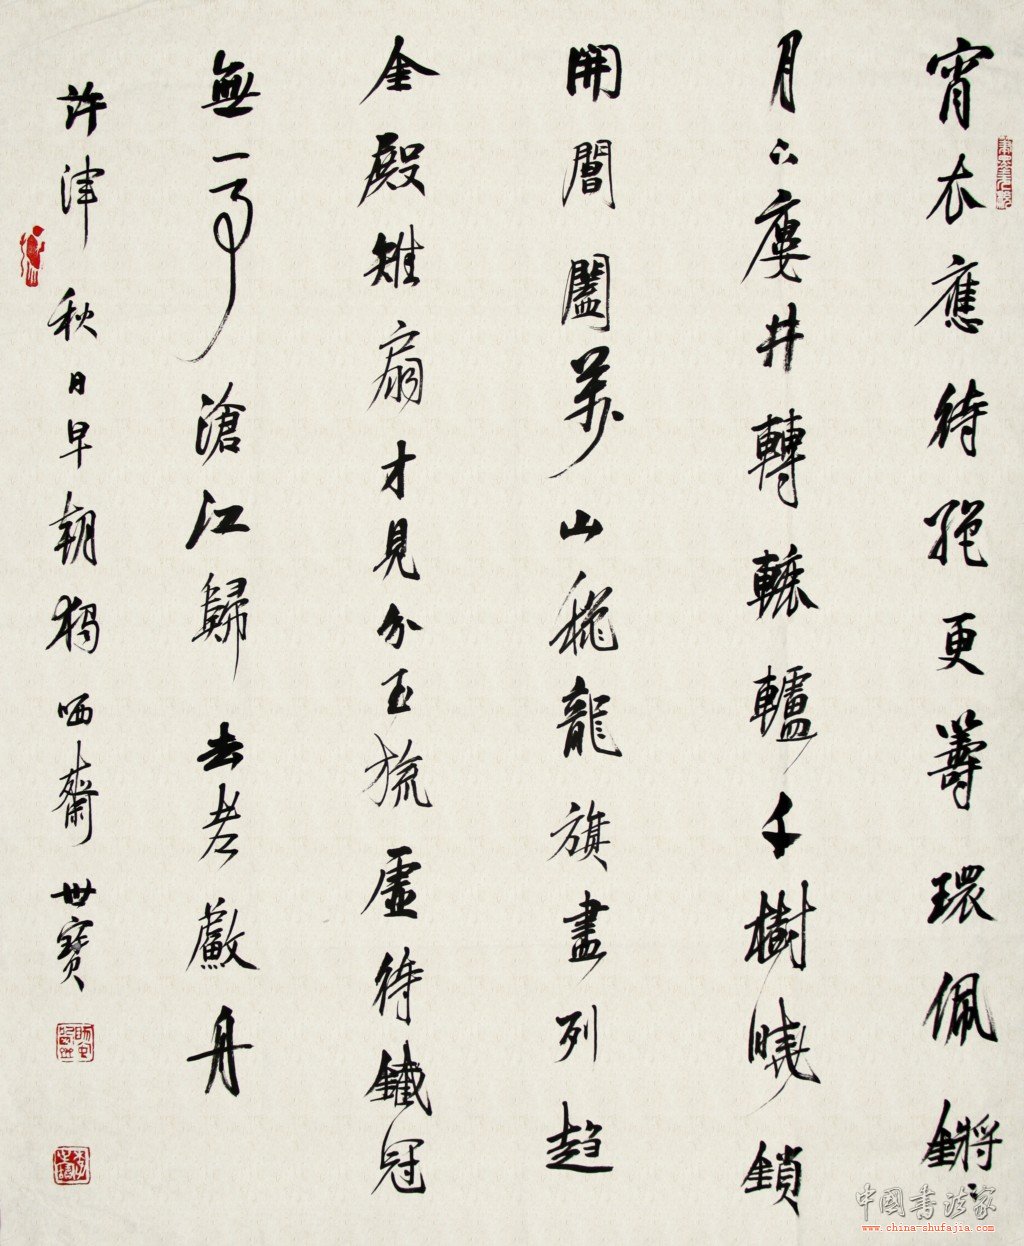 宵衣應待絕更籌環佩鏘〻
月下廔井轉轆轤千樹曉鎖
開閶闔萬山穐龍旗盡列趨
金殿雉扇才見分玉旒虛待鐵冠
無一事滄江歸去老漁舟
許渾秋日早朝獨哂齋世寶
中國書法家
www.china-shufajia.com